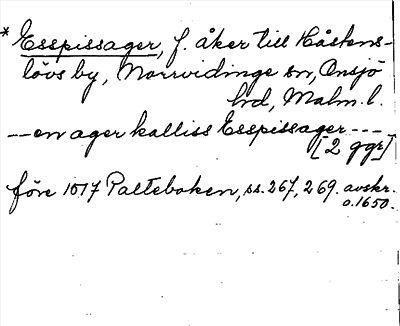 * Esspissager, f. åker till Håstens-
lövs by, Norrvidinge sn, Onsjö
hd, Malm. l.
-- en ager kalliss Esspissager ---
[2 ggr]
före 1017 Palteboken, ss. 267, 269. avskr.
o. 1650.